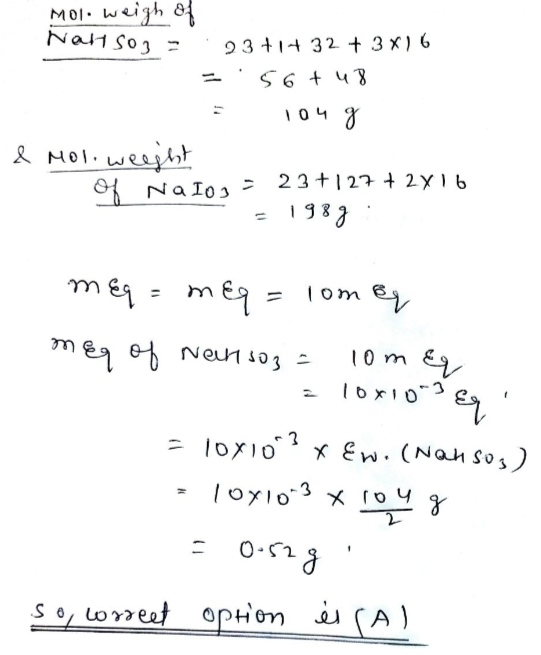 Mol. weigh of
NaHSO3 = 23+1+32+3×16
= 56+48
= 104 g
& Mol. weeght
of NaIO3 = 23+127+2×16
= 198g
mEq = mEq = 10mEq
mEq of NaHSO3 = 10 mEq
= 10×10-3 Eq
= 10×10-3 × Ew. (NaHSO3)
= 10×10-3 × 104/2 g
= 0.52g
So, correct option is (A)